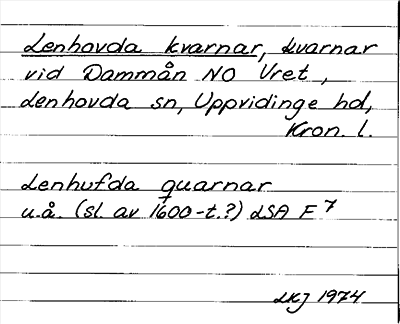 Lenhovda kvarnar, kvarnar
vid Dammån NO Uret,
Lenhovda sn, Uppvidinge hd,
Kron. l.
Lenhufda quarnar
u.å. (sl. av 1600-t.?) LSA F 7
LKJ 1974